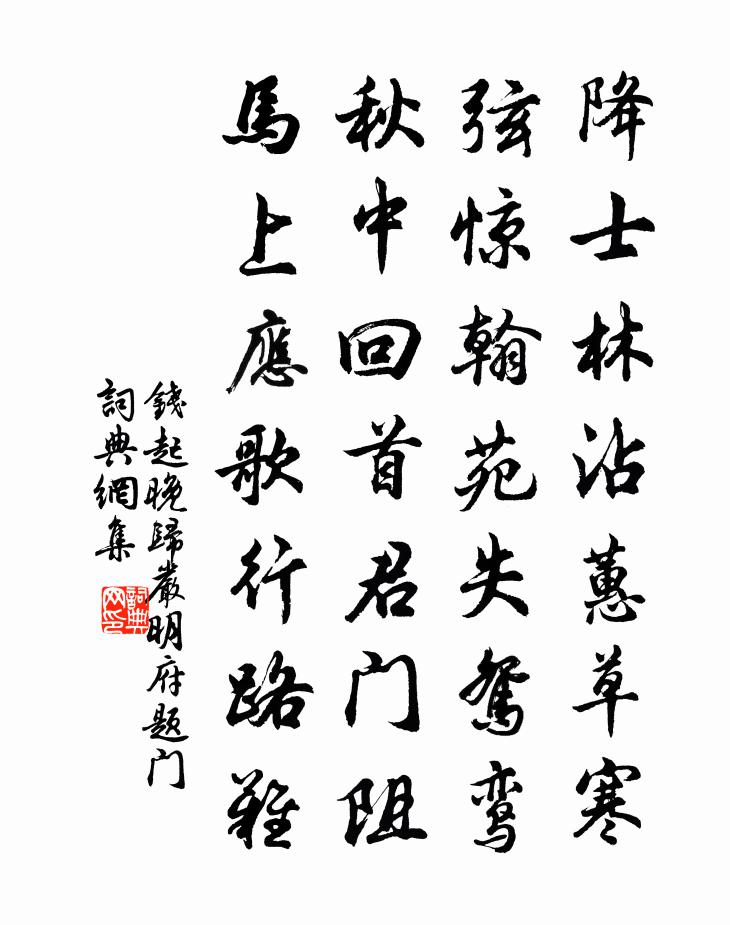 降士林沾蕙草寒
弦惊翰苑失鸳鸾
秋中回首君门阻
馬上應歌行路難
錢起晚歸嚴明府题门
詞典網集
詞典网印